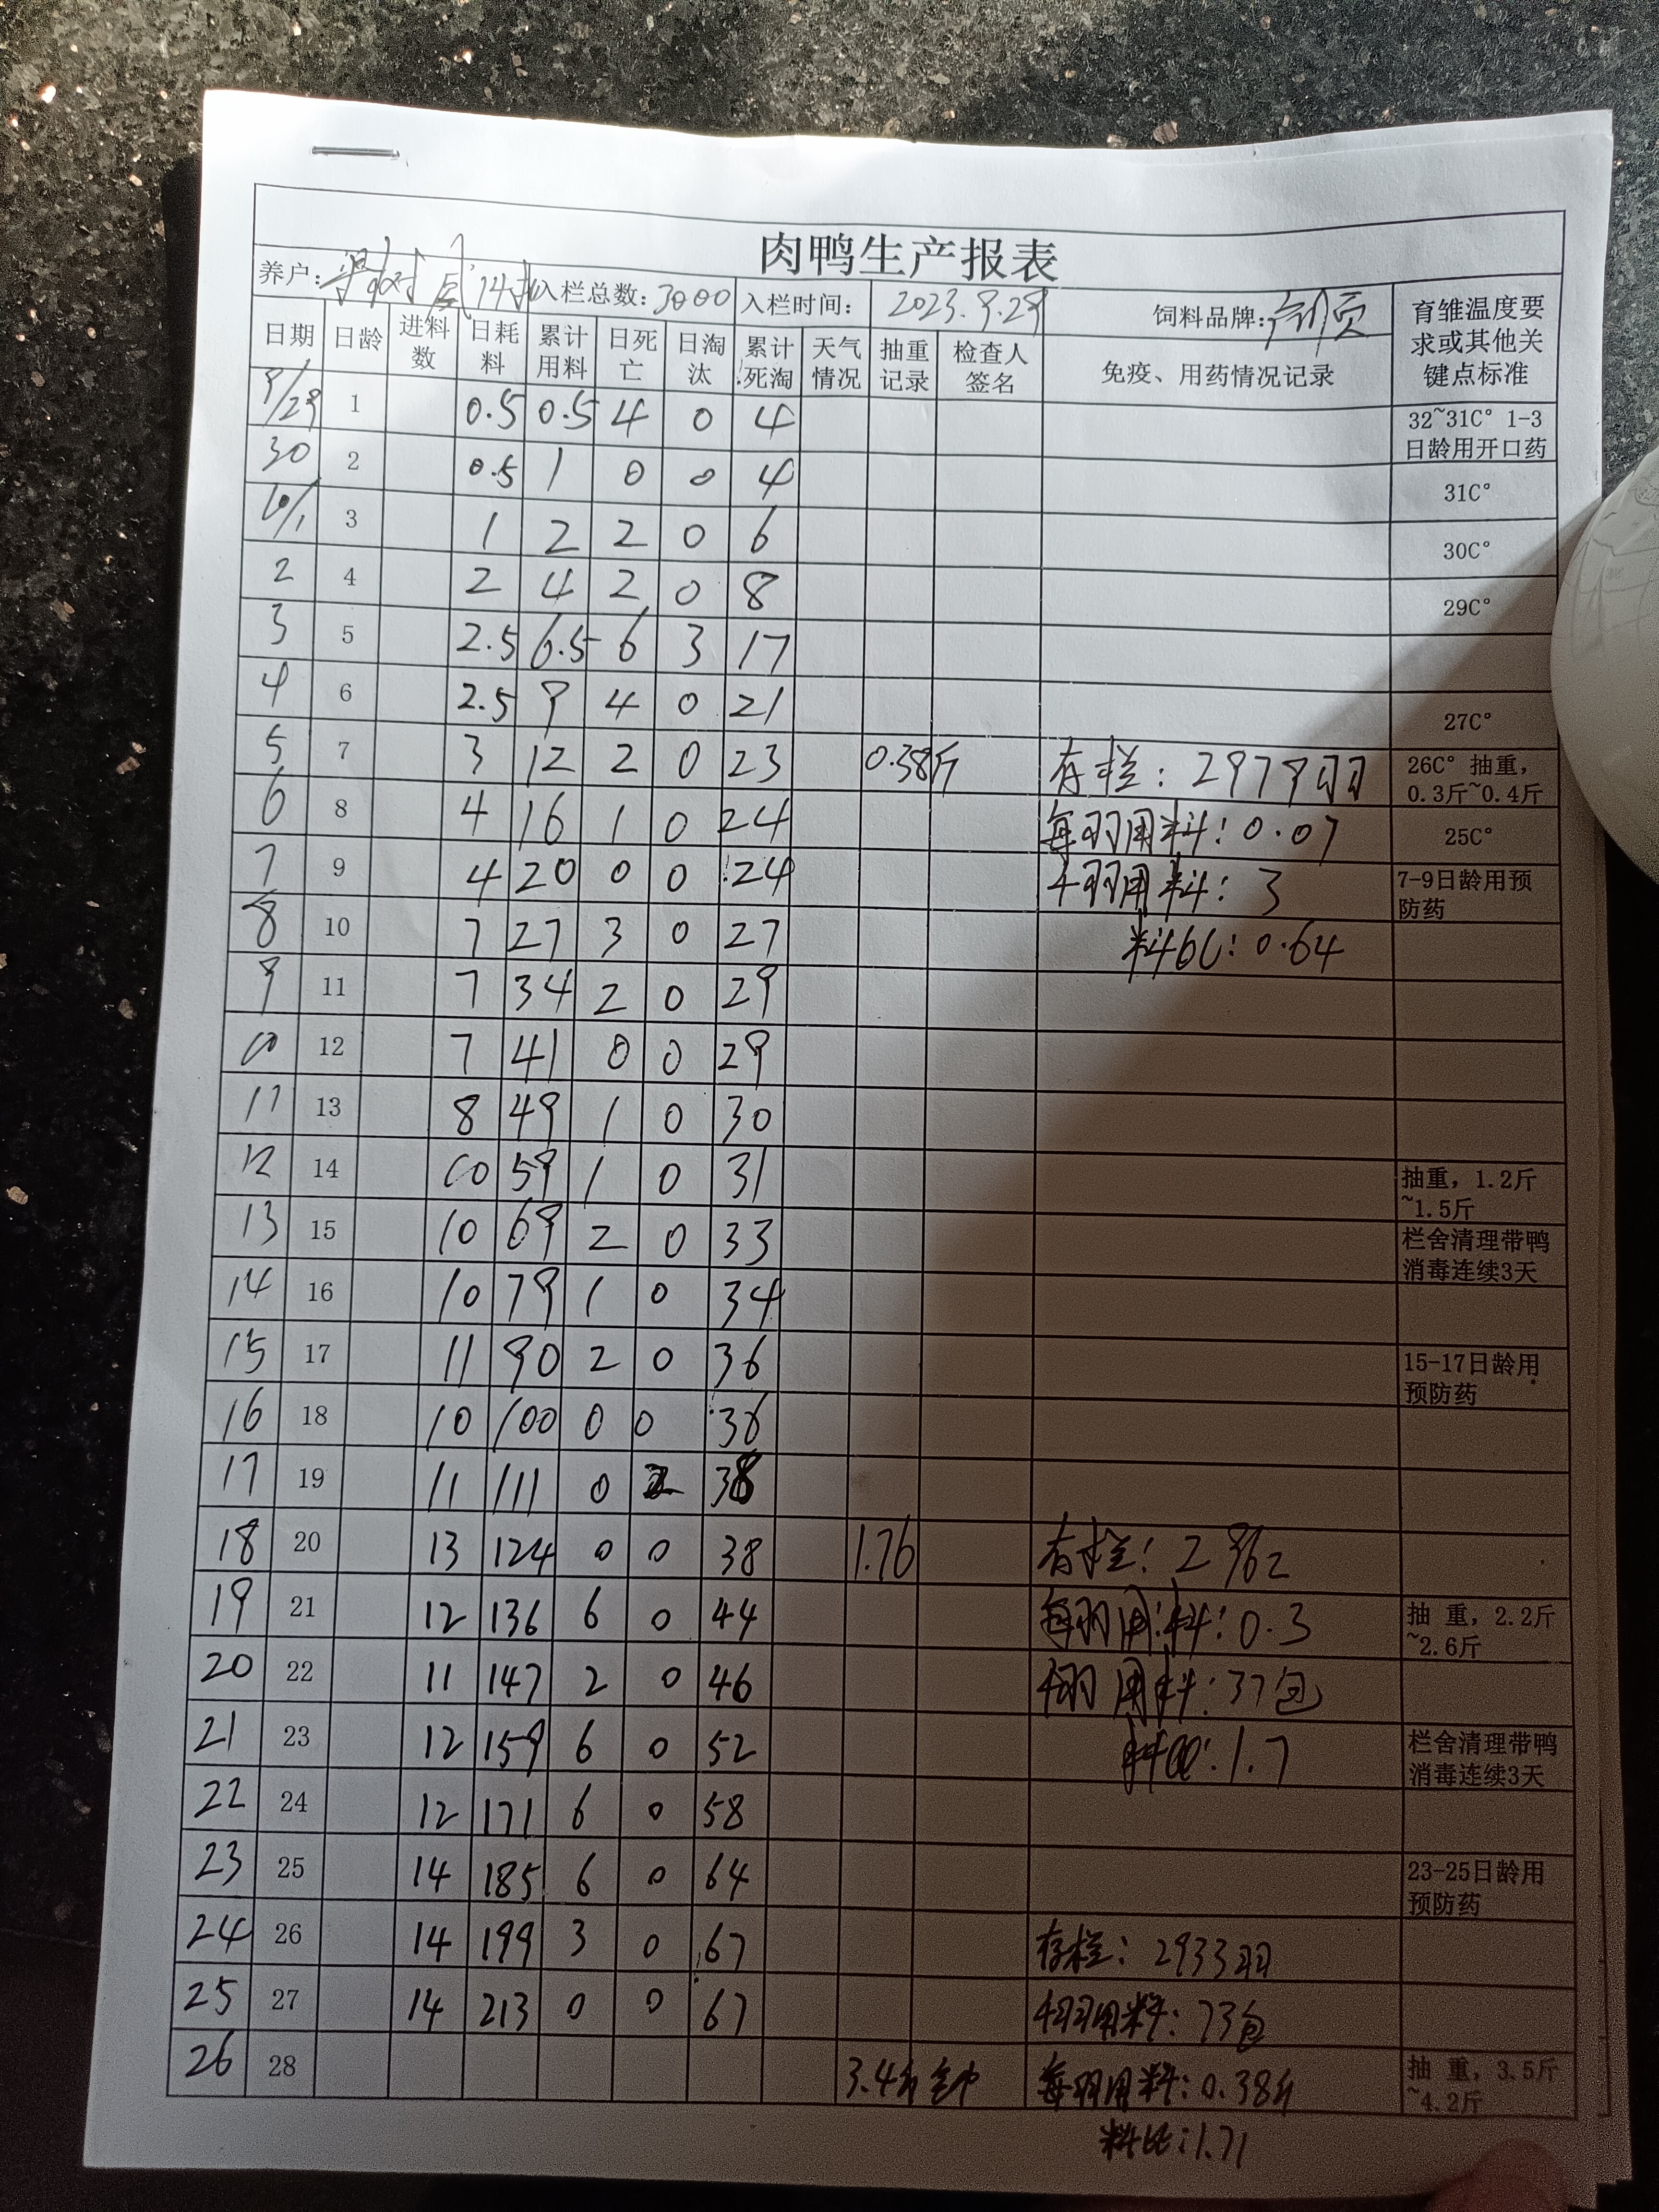 肉鸭生产报表
养户: 14批 入栏总数: 3000 入栏时间: 2023.9.29 饲料品牌: 育雏温度要求或其他关键点标准
日期 日龄 进料数 日耗料 累计用料 日死亡 日淘汰 累计死淘 天气情况 抽重记录 检查人签名 免疫、用药情况记录
9/29 1 0.5 0.5 4 0 4 32~31C° 1-3日龄用开口药
30 2 0.5 1 0 0 4 31C°
10/1 3 1 2 2 0 6 30C°
2 4 2 4 2 0 8 29C°
3 5 2.5 6.5 6 3 17
4 6 2.5 9 4 0 21 27C°
5 7 3 12 2 0 23 0.38斤 存栏: 2979羽 26C° 抽重, 0.3斤~0.4斤
6 8 4 16 1 0 24 每羽用料: 0.07 25C°
7 9 4 20 0 0 24 千羽用料: 3 7-9日龄用预防药
8 10 7 27 3 0 27 料比: 0.64
9 11 7 34 2 0 29
10 12 7 41 0 0 29
11 13 8 49 1 0 30
12 14 10 59 1 0 31 抽重, 1.2斤~1.5斤
13 15 10 69 2 0 33 栏舍清理带鸭消毒连续3天
14 16 10 79 1 0 34
15 17 11 90 2 0 36 15-17日龄用预防药
16 18 10 100 0 0 36
17 19 11 111 0 2 38
18 20 13 124 0 0 38 1.76 存栏: 2962
19 21 12 136 6 0 44 每羽用料: 0.3 抽 重, 2.2斤~2.6斤
20 22 11 147 2 0 46 千羽用料: 37包
21 23 12 159 6 0 52 料比: 1.7 栏舍清理带鸭消毒连续3天
22 24 12 171 6 0 58
23 25 14 185 6 0 64 23-25日龄用预防药
24 26 14 199 3 0 67 存栏: 2933羽
25 27 14 213 0 0 67 千羽用料: 73包
26 28 3.4斤 每羽用料: 0.38斤 抽 重, 3.5斤~4.2斤
料比: 1.71